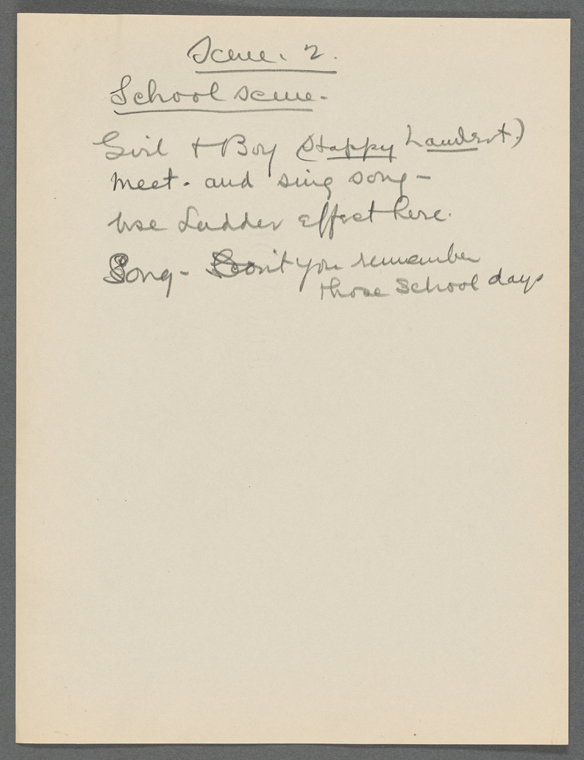 Scene. 2.
School scene.
Girl + Boy (Happy
meet. and sing song -
Use Ladder effect here.
Song - Don't you remember
those School days